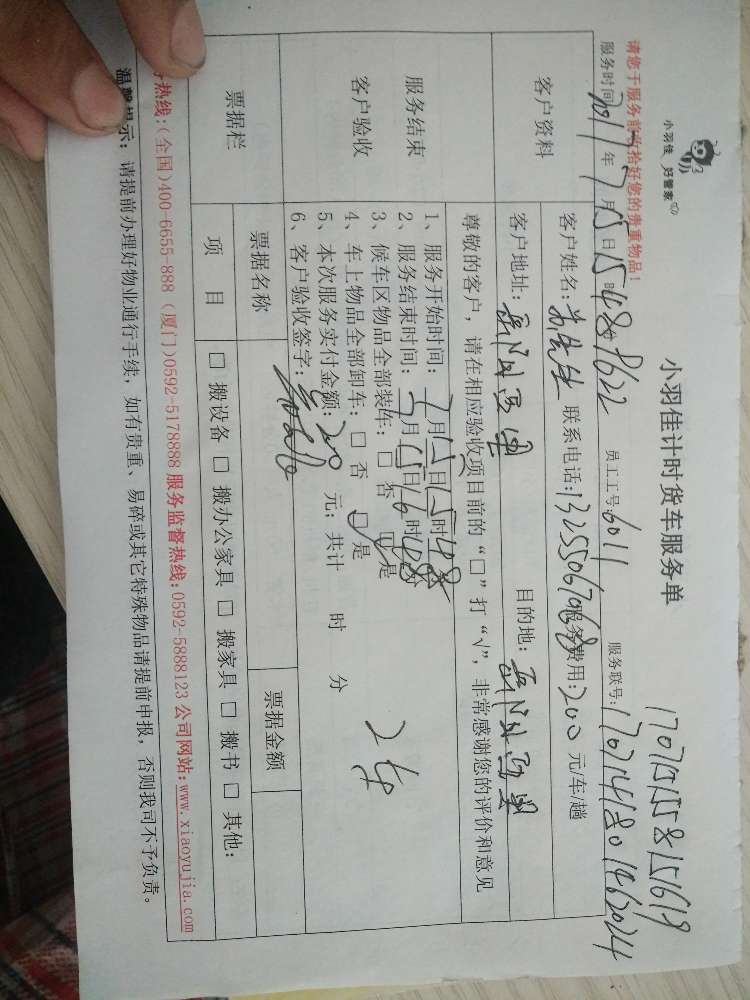 小羽佳 好管家
小羽佳计时货车服务单
请您于服务前收拾好您的贵重物品!
服务时间 年 7 月 15 日 15 时 48 分 员工工号:6011 服务联号:
客户资料
客户姓名: 先生 联系电话:13255067068 服务费用:200 元/车/趟
客户地址: 目的地:
服务结束
客户验收
尊敬的客户,请在相应验收项目前的“□”打“√”,非常感谢您的评价和意见
1、服务开始时间: 7 月 15 日 15 时 48 分
2、服务结束时间: 7 月 15 日 16 时 48 分
3、候车区物品全部装车:□ 否 □ 是
4、车上物品全部卸车:□ 否 □ 是
5、本次服务实付金额:200 元;共计 时 分
6、客户验收签字:
票据栏
票据名称 票据金额
项 目 □ 搬设备 □ 搬办公家具 □ 搬家具 □ 搬书 □ 其他:
热线:(全国)400-6655-888 (厦门)0592-5178888 服务监督热线:0592-5888123 公司网站:www.xiaoyujia.com
温馨提示:请提前办理好物业通行手续,如有贵重、易碎或其它特殊物品请提前申报,否则我司不予负责。